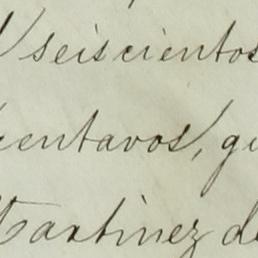 seiscientos
centavos, qu
Martinez de